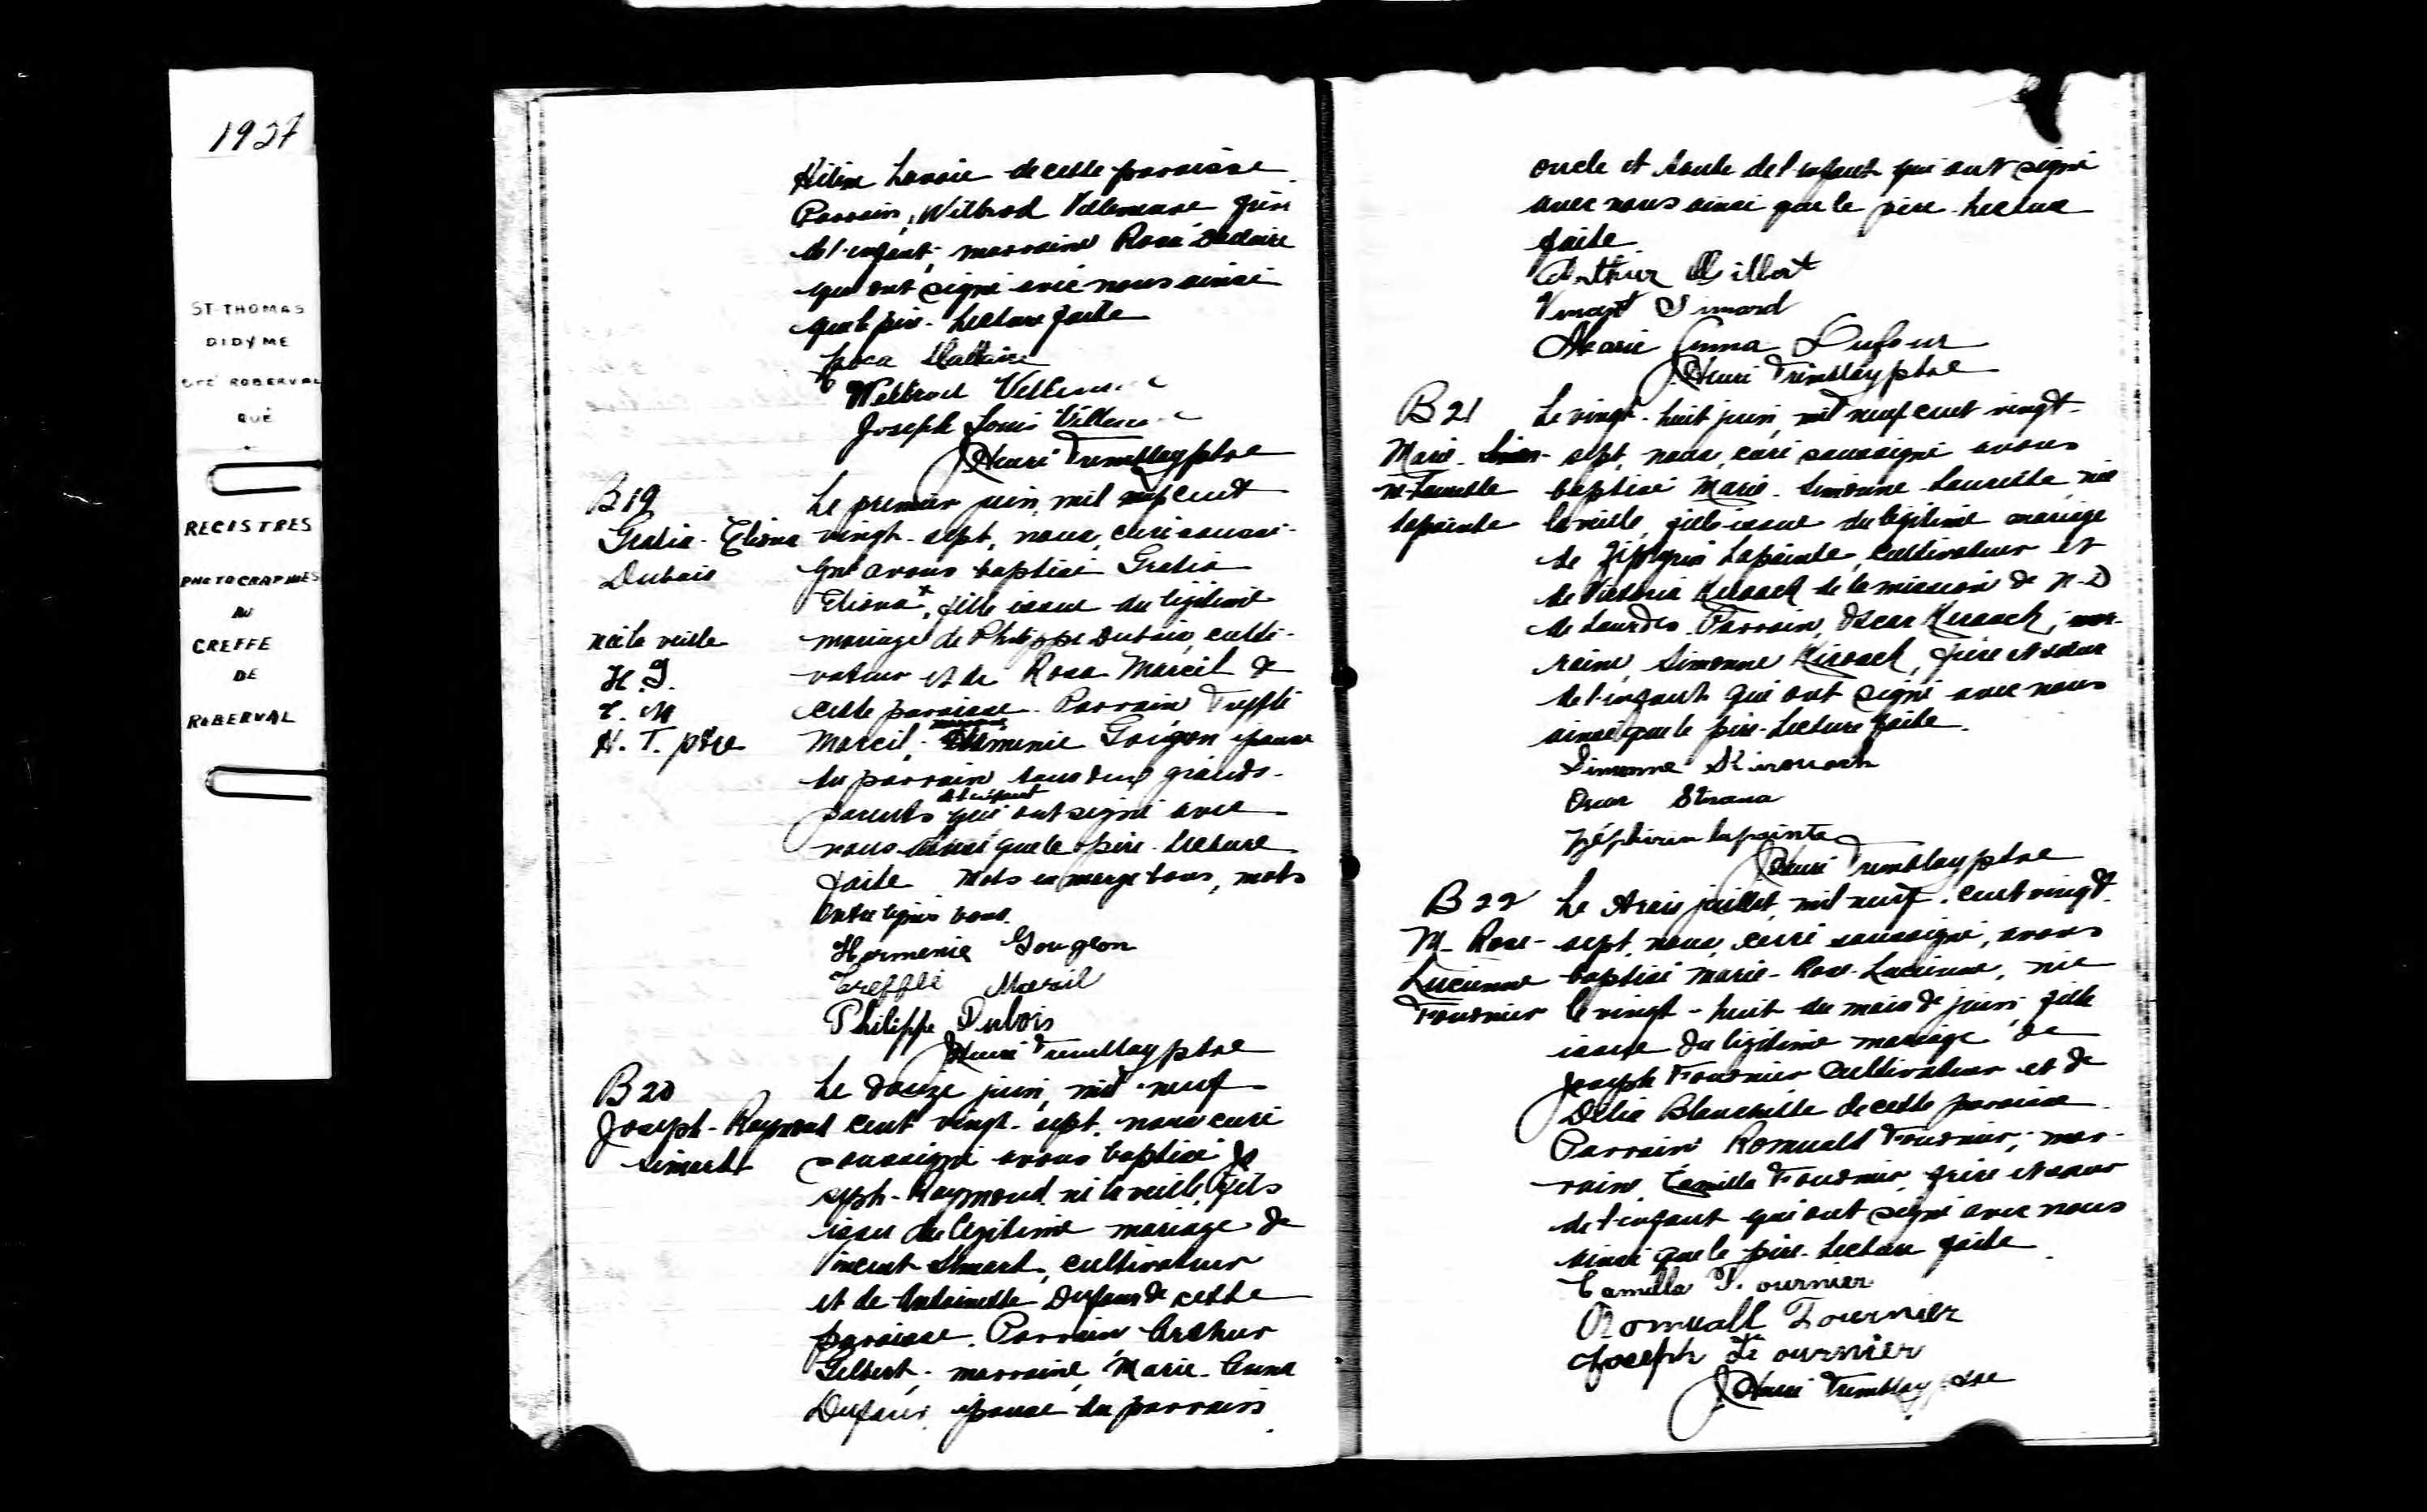 1927
ST-THOMAS
DIDYME
CTÉ ROBERVAL
QUÉ
REGISTRES
PHOTOGRAPHIÉS
AU
GREFFE
DE
ROBERVAL
Hélène Lavoie de cette paroisse
Parrain, Wilbrod Villeneuve frère
de l'enfant; marraine Rosa Dallaire
qui ont signé avec nous ainsi
que le père. Lecture faite
Rosa Dallaire
Wilbrod Villeneuve
Joseph Louis Villeneuve
J Henri Tremblay ptre
B 19
Gratia-Eliana
Dubois
née la veille
H. G.
T. M
H. T. ptre
Le premier juin, mil neuf cent
vingt-sept, nous, curé soussi-
gné avons baptisé Gratia
Eliana, fille issue du légitime
mariage de Philippe Dubois, culti-
vateur et de Rosa Marcil de
cette paroisse. Parrain Trefflé
Marcil; marraine Gougeon épouse
du parrain tous deux grands-
parents de l'enfant qui ont signé avec
nous ainsi que le père. Lecture
faite Mots en marge bons, mots
entre lignes bons.
Hermenie Gougeon
Trefflé Marcil
Philippe Dubois
J Henri Tremblay ptre
B 20
Joseph-Raymond
Simard
Le douze juin, mil neuf
cent vingt-sept, nous curé
soussigné avons baptisé Jo
seph-Raymond né la veille, fils
issu du légitime mariage de
Vincent Simard, cultivateur
et de Antoinette Dufour de cette
paroisse. Parrain Arthur
Gilbert; marraine, Marie-Anna
Dufour, épouse du parrain
oncle et tante de l'enfant qui ont signé
avec nous ainsi que le père. Lecture
faite
Arthur Gilbert
Vincent Simard
Marie Anna Dufour
J Henri Tremblay ptre
B 21
Marie-Simon-
ne-Laurette
Lapointe
Le vingt-huit juin, mil neuf cent vingt-
sept, nous, curé soussigné avons
baptisé Marie-Simonne-Laurette, née
la veille, fille issue du légitime mariage
de Zéphirin Lapointe, cultivateur et
de Victoria Kirouack de la mission de N-D
de Lourdes. Parrain, Oscar Kirouack; mar-
raine, Simonne Kirouack, frère et soeur
de l'enfant qui ont signé avec nous
ainsi que le père. Lecture faite.
Simonne Kirouack
Oscar
Zéphirin Lapointe
J Henri Tremblay ptre
B 22
M-Rose-
Lucienne
Fournier
Le trois juillet, mil neuf-cent vingt-
sept, nous, curé soussigné, avons
baptisé Marie-Rose-Lucienne, née
le vingt-huit du mois de juin, fille
issue du légitime mariage de
Joseph Fournier cultivateur et de
Délia Blanchette de cette paroisse.
Parrain Romuald Fournier; mar-
raine, Camilla Fournier, frère et soeur
de l'enfant qui ont signé avec nous
ainsi que le père. Lecture faite.
Camilla Fournier
Romuall Fournier
Joseph Fournier
J Henri Tremblay ptre